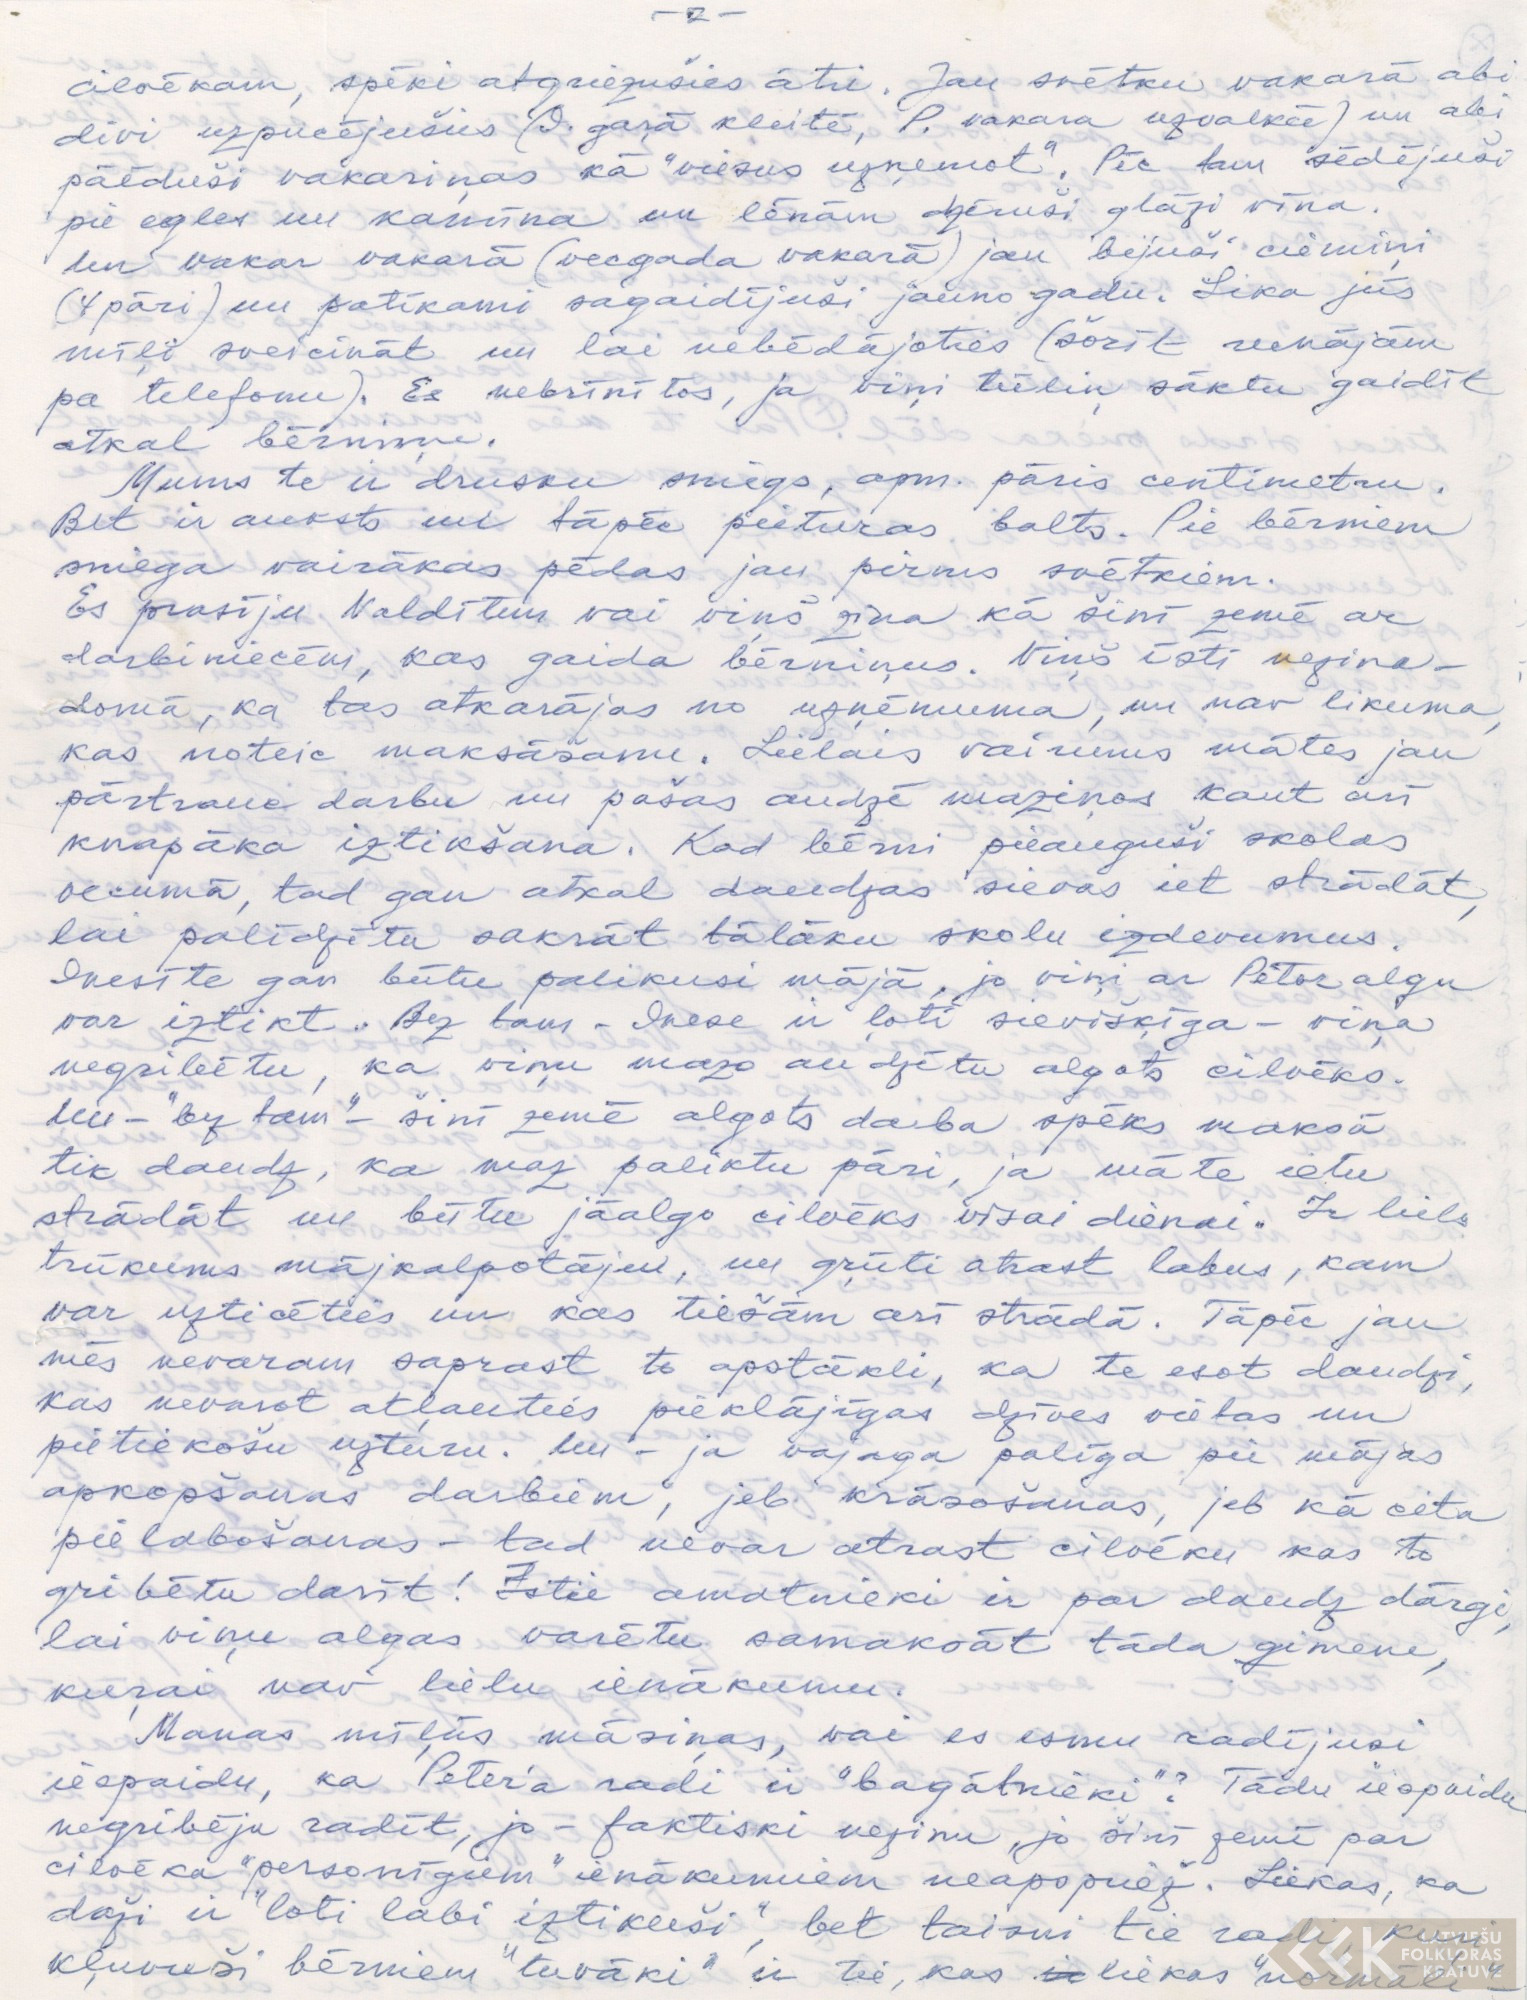 -2-
cilvēkam, spēki atgriezušies ātri. Jau svētku vakarā abi
divi uzpucējušies (I. gaŗā kleitē, P. vakara uzvalkā) un abi
paēduši vakariņas kā "viesus uzņemot". Pēc tam sēdējuši
pie egles un kamīna un lēnām dzēruši glāzi vīna.
Un vakar vakarā (vecgada vakarā) jau bijuši ciemiņi
(4 pāri) un patīkami sagaidījuši jauno gadu. Lika jūs
mīļi sveicināt un lai nebēdājoties (šorīt runājām
pa telefonu). Es nebrīnītos, ja viņi tūliņ sāktu gaidīt
atkal bērniņu.
Mums te ir drusku sniegs, apm. pāris centimetru.
Bet ir auksts un tāpēc pieturas balts. Pie bērniem
sniega vairākas pēdas jau pirms svētkiem.
Es prasīju Valdītim vai viņš zina kā šinī zemē ar
darbiniecēm, kas gaida bērniņus. Viņš īsti nezina -
domā, ka tas atkarājas no uzņēmuma, un nav likuma,
kas noteic maksāšanu. Lielais vairums mātes jau
pārtrauc darbu un pašas audzē maziņos kaut arī
knapāka iztikšana. Kad bērni pieauguši skolas
vecumā, tad gan atkal daudzas sievas iet strādāt,
lai palīdzētu sakrāt tālāku skolu izdevumus.
Inesīte gan būtu palikusi mājā, jo viņi ar Pētor algu
var iztikt. Bez tam - Inese ir ļoti sievišķīga - viņa
negribētu, ka viņu mazo audzētu algots cilvēks.
Un - "bez tam" - šinī zemē algots darba spēks maksā
tik daudz, ka maz paliktu pāri, ja māte ietu
strādāt un būtu jāalgo cilvēks visai dienai. Ir liels
trūkums mājkalpotāju, un grūti atrast labus, kam
var uzticēties un kas tiešām arī strādā. Tāpēc jau
mēs nevaram saprast to apstākli, ka te esot daudzi,
kas nevarot atļauties pieklājīgas dzīves vietas un
pietiekošu uzturu. Un - ja vajaga palīga pie mājas
apkopšanas darbiem, jeb krāsošanas, jeb kā cita
pielabošanas - tad nevar atrast cilvēku kas to
gribētu darīt! Īstie amatnieki ir par daudz dārgi,
lai viņu algas varētu samaksāt tāda ģimene,
kuŗai nav lielu ienākumu.
Manas mīļās māsiņas, vai es esmu radījusi
iespaidu, ka Peter'a radi ir "bagātnieki"? Tādu iespaidu
negribēju radīt, jo - faktiski nezinu, jo šinī zemē par
cilvēka "personīgiem" ienākumiem neapspriež. Liekas, ka
daži ir "ļoti labi iztikuši", bet taisni tie radi, kuŗi
kļuvuši bērniem "tuvāki" ir tie, kas liekas "normāli" -
LATVIEŠU
FOLKLORAS
KRĀTUVE